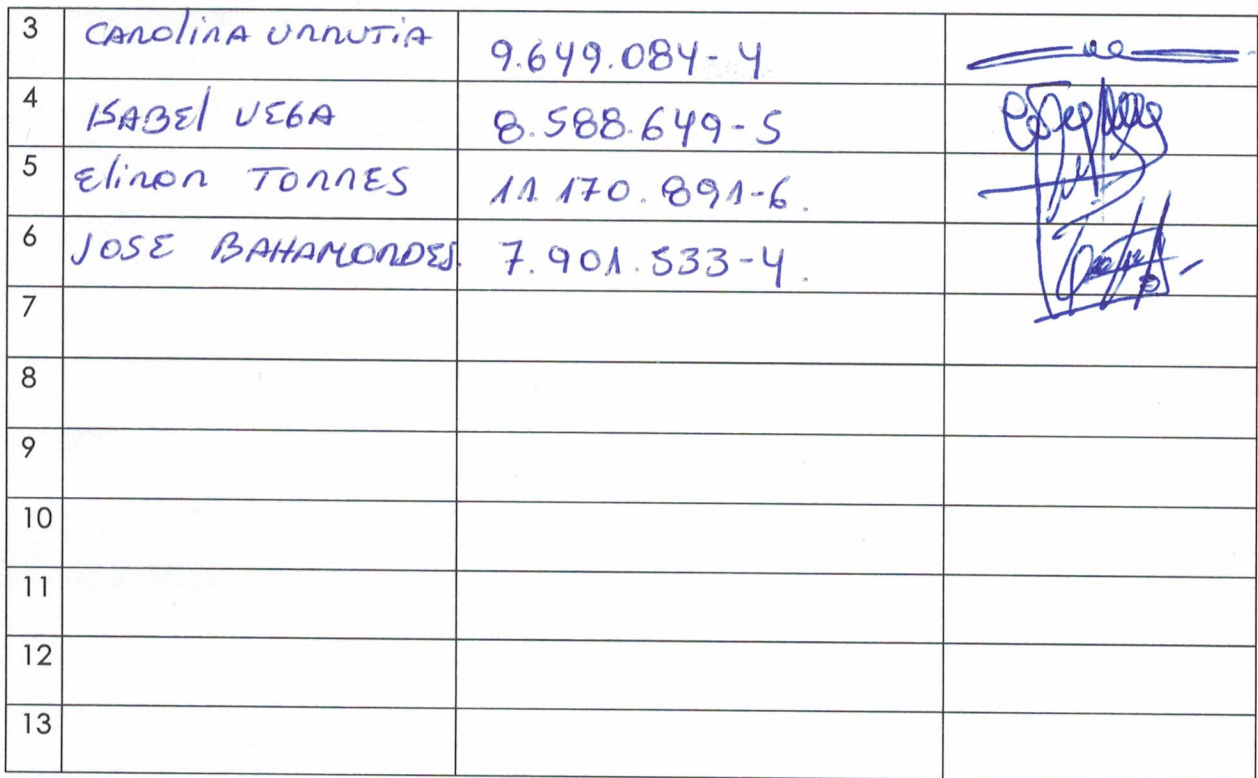 3 CAROLINA URRUTIA 9.649.084-4
4 ISABEL VEGA 8.588.649-5
5 Elinor TORRES 11.170.891-6.
6 JOSE BAHAMONDES. 7.901.533-4.
7
8
9
10
11
12
13